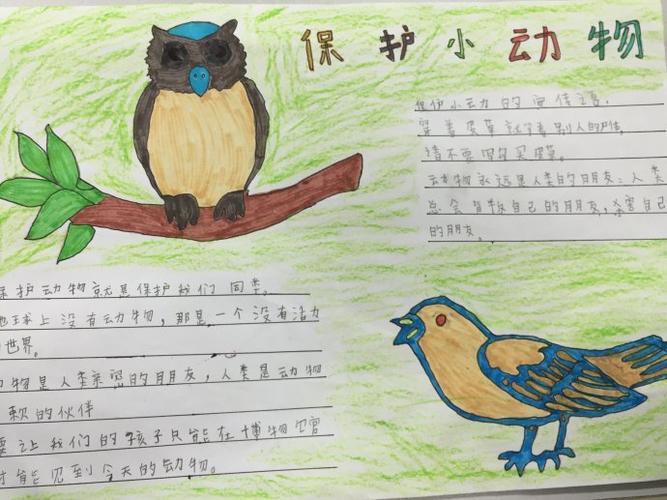 保护小动物
保护小动力的宣传语.
穿着皮草就穿着别人的尸体,
请不要购买皮草。
动物永远是人类的朋友:人类
总会背叛自己的朋友,杀害自己
的朋友。
保护动物就是保护我们同类.
地球上没有动物,那是一个没有活力
世界。
物是人类亲密的朋友,人类是动物
赖的伙伴
要让我们的孩子只能在博物馆
才能见到今天的动物。